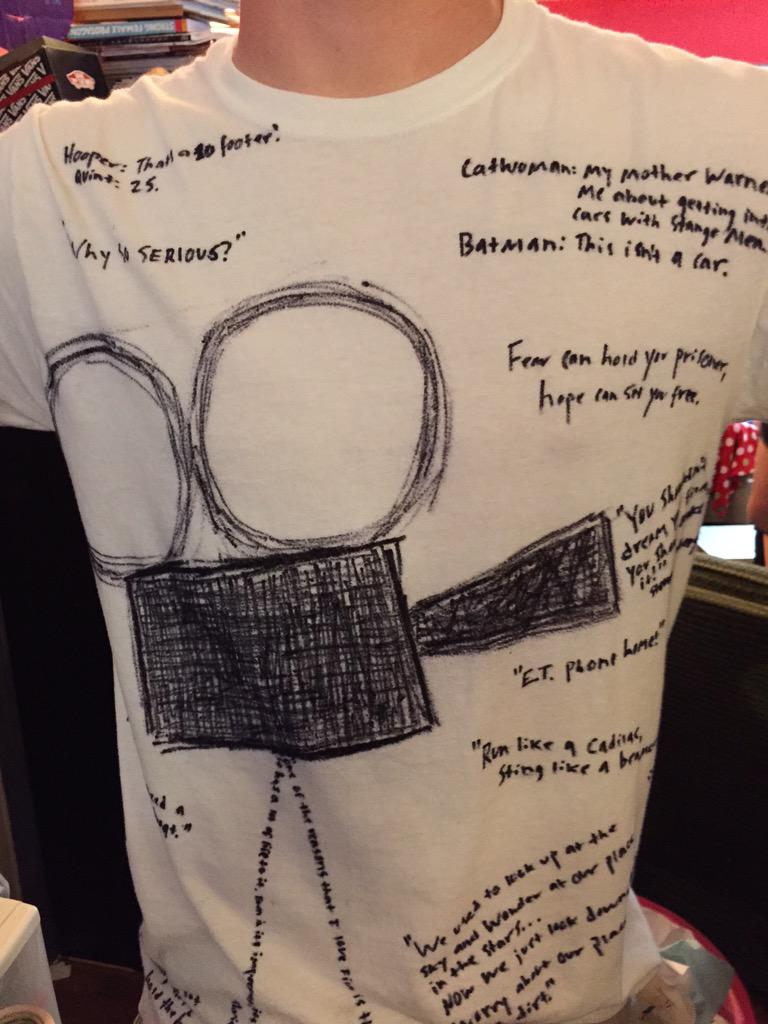 STRONG FEMALE PROTAGON
VANS
Hooper: That's a 20 footer!
Quint: 25.
"Why so SERIOUS?"
Catwoman: My mother Warne
Me about getting int
cars with stange Men.
BATMAN: This isn't a car.
Fear can hold you prisoner,
hope can set you free.
"You shouldn't
dream
it!"
"E.T. phone home!"
"Run like a Cadilac,
Sting like a
ed a
"
one of the reasons that I love Film is th
"We used to look up at the
sky and wonder at our place
in the stars...
Now we just look down
worry about our place
dirt."